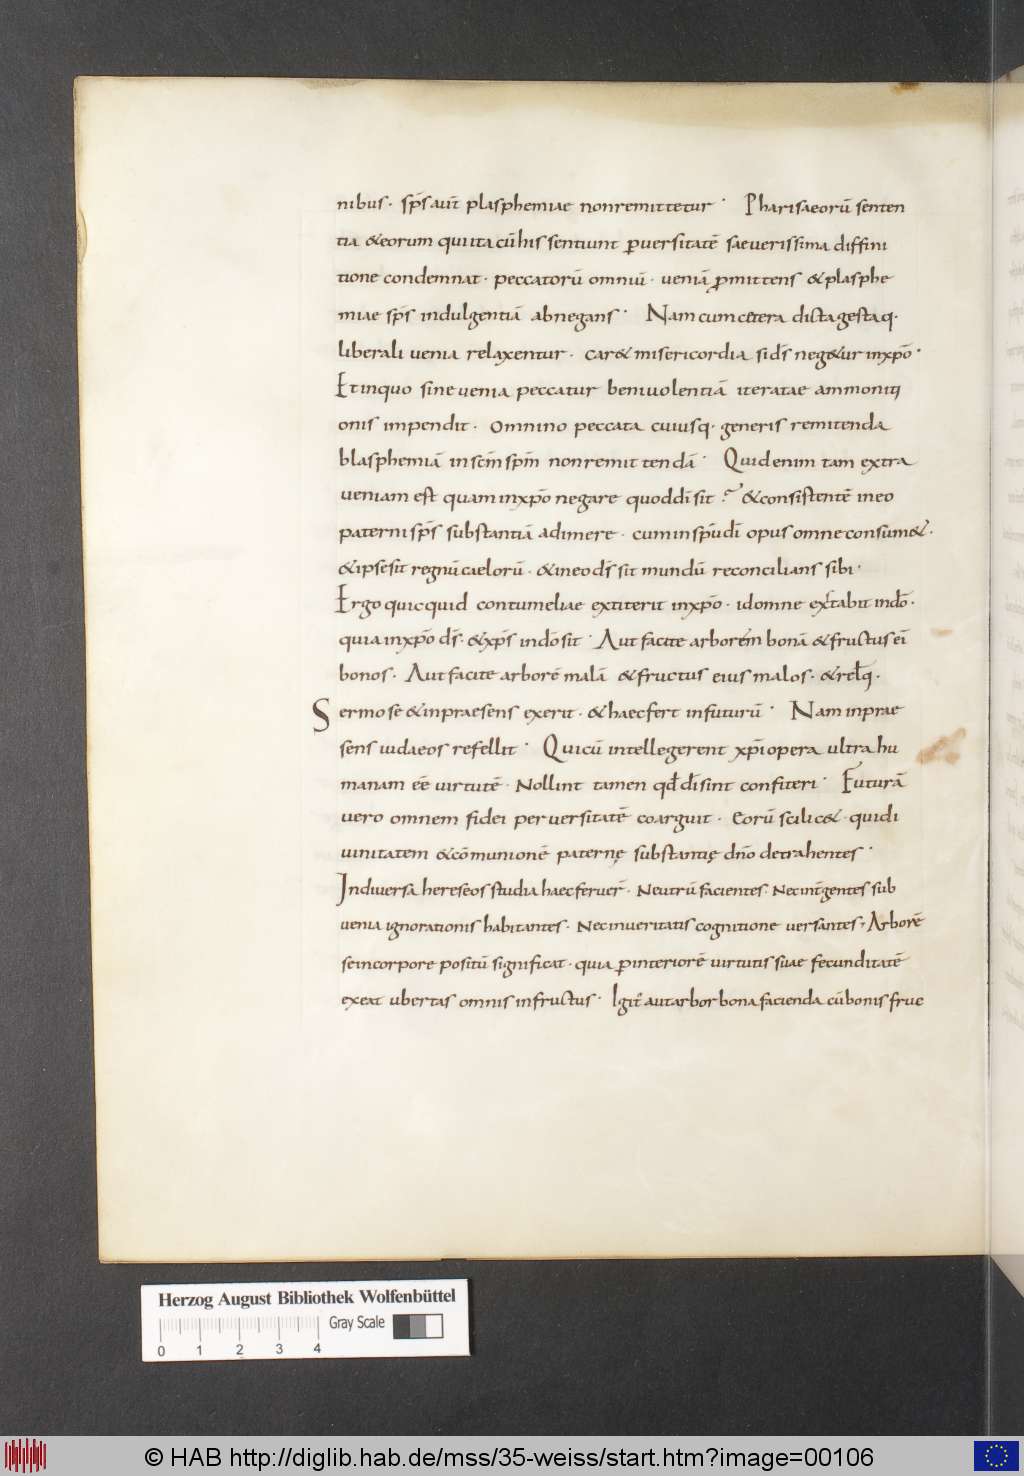 nibus · sp̄s aut̄ plasphemiae non remittetur · Pharisaeorū senten
tia & eorum qui ita cū his sentiunt ꝑversitatē saeverissima diffini
tione condemnat · peccatorū omniū · veniā ꝓmittens & plasphe
miae sp̄s indulgentiā abnegans · Nam cum cetera dicta gestaq·
liberali venia relaxentur · car& misericordia si d̄s neg&ur in xp̄o ·
Et in quo sine venia peccatur benivolentiā iteratae ammoniti
onis impendit · Omnino peccata cuiusq· generis remitenda
blasphemiā in sc̄m sp̄m non remittendā · Quid enim tam extra
veniam est quam in xp̄o negare quod d̄i sit ? & consistentē in eo
paterni sp̄s substantiā adimere · cum in sp̄u d̄i opus omne consum& ·
& ipse sit regnū caelorū · & in eo d̄s sit mundū reconcilians sibi ·
Ergo quicquid contumeliae extiterit in xp̄o · id omne extabit in dō ·
quia in xp̄o d̄s · & xp̄s in dō sit · Aut facite arborem bonā & fructus ei
bonos · Aut facite arborē malā & fructus eius malos · & relq̄ ·
Sermo se & in praesens exerit · & haec fert in futurū · Nam in prae
sens iudaeos refellit · Qui cū intellegerent xp̄i opera ultra hu
manam eē virtutē · Nollint tamen qđ d̄i sint confiteri · Futurā
vero omnem fidei perversitatē coarguit · Eorū scilic& · qui di
vinitatem & cōmunionē paternę substantię dn̄o detrahentes ·
In diversa hereseos studia haec feruer̄ · Neutrū facientes · Nec int̄ gentes sub
venia ignorationis habitantes · Nec in veritatis cognitione versantes · Arborē
se in corpore positū significat · quia ꝑ interiorē virtutis suae fecunditatē
exeat ubertas omnis in fructus · Igit̄ aut arbor bona facienda cū bonis fruc
Herzog August Bibliothek Wolfenbüttel
Gray Scale
0 1 2 3 4
© HAB http://diglib.hab.de/mss/35-weiss/start.htm?image=00106